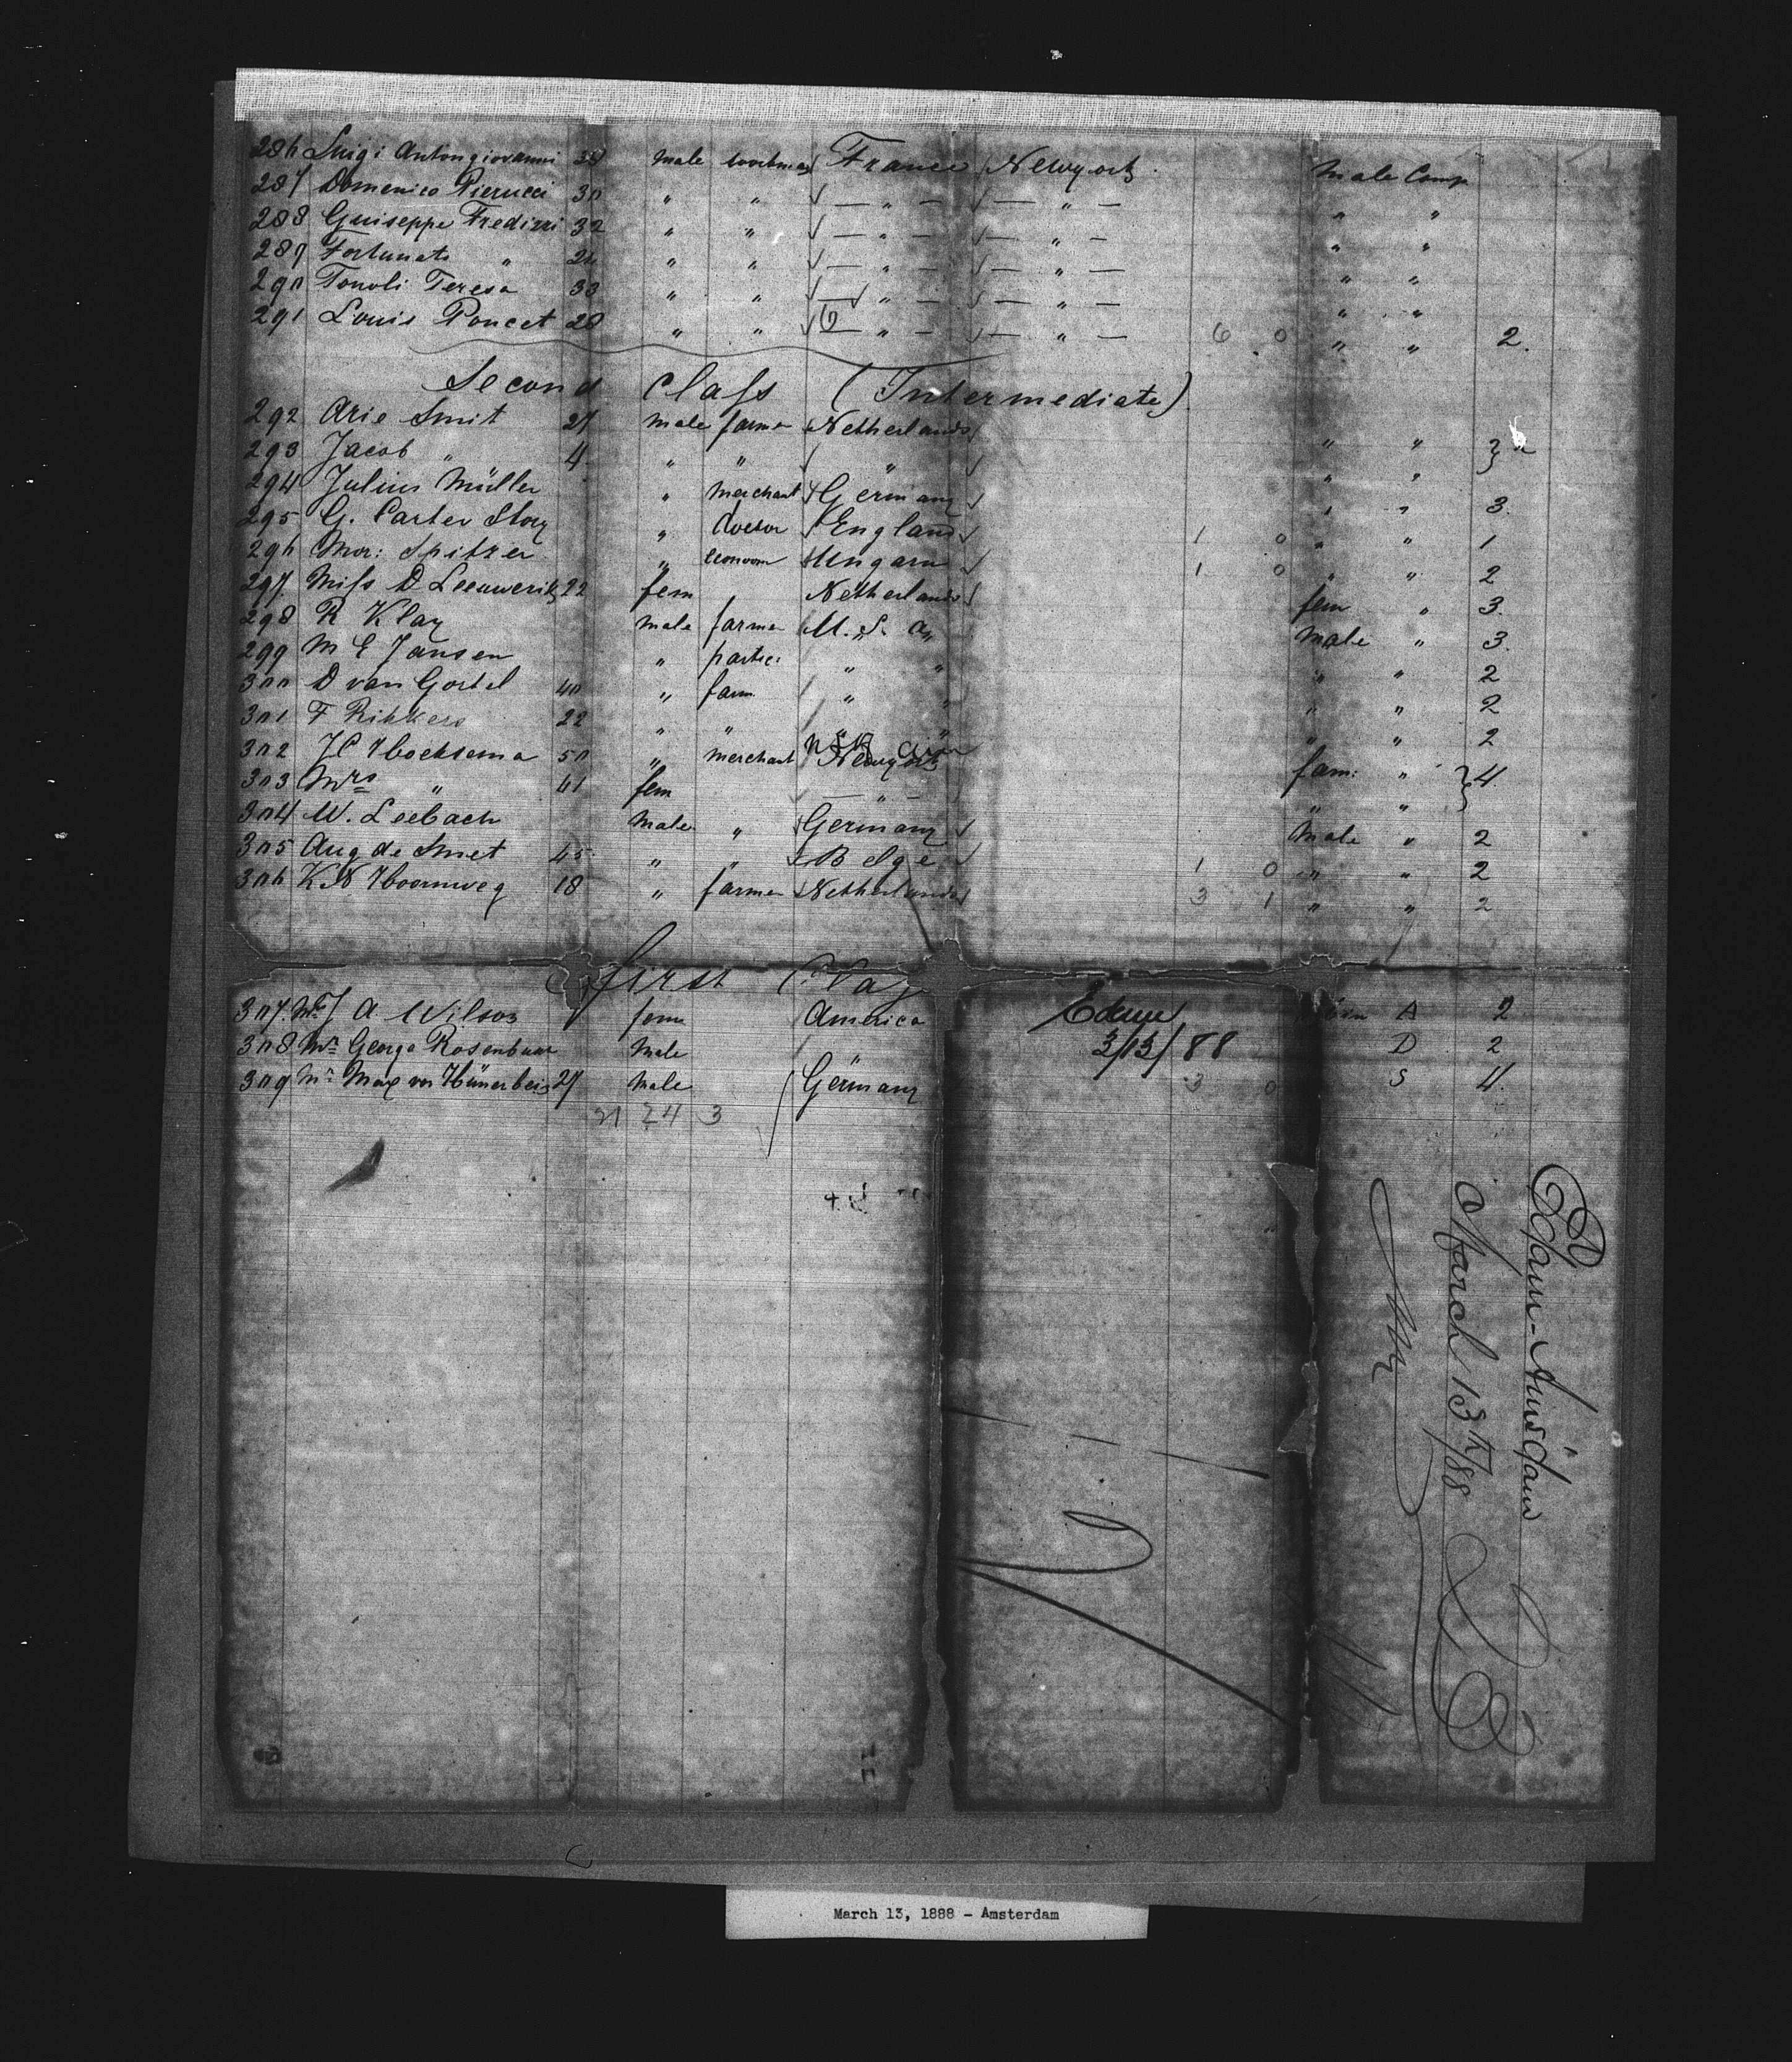 286 Luigi Antongiovanni 38 male workman France Newyork Male Comp
287 Domenico Pierucci 30 " " — " — — " — " "
288 Guiseppe Fredizzi 32 " " — " — — " — " "
289 Fortunato " 24 " " — " — — " — " "
290 Tonoli Teresa 33 " " — " — — " — " "
291 Louis Poncet 28 " " — " — — " — 6 0 " " 2.
Second Class (Intermediate)
292 Arie Smit 27 male farmer Netherlands " "
293 Jacob " 4 " " " " "
294 Julius Müller " Merchant Germany " " 3.
295 G. Carter Story " doctor England 1 0 " " 1
296 Mor: Spitzer " Hungarn 1 0 " " 2
297. Miss D Leeuwerik 22 fem Netherlands fem " 3.
298 R Klay male farmer U. S. a, male " 3.
299 M E Jansen " partic: " " " " 2
300 D van Gortel 40 " farm. " " " " 2
301 F Rikkers 22 " " " " " " 2
302 J C Hoeksema 50 " merchant Newyork fam: " 4.
303 Mrs " 41 fem — " — " "
304 W. Leebach male " Germany male " 2
305 Aug de Smet 45 " " Belge 1 0 " " 2
306 K N Hoornweg 18 " farmer Netherlands 3 1 " " 2
first
307. A Wilson fem America A 2
308 Mr George Rosenbaum Male " D 2
309 Mr Max von Hünerbein 27 Male Germany 3 0 S 4.
Edam
3/13/88
24 3
Edam-Amsdam
March 13th/88
March 13, 1888 - Amsterdam